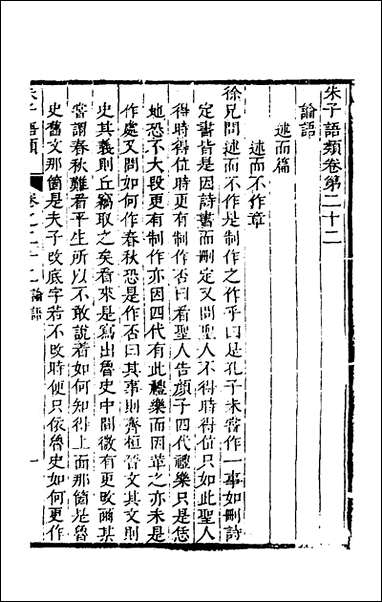 朱子語類卷第二十二
論語
述而篇
述而不作章
徐兄問述而不作是制作之作乎曰是孔子未嘗作一事如刪詩
定書皆是因詩書而刪定又問聖人不得時得位只如此聖人
得時得位時更有制作否曰看聖人告顏子四代禮樂只是恁
地恐不大段更有制作亦因四代有此禮樂而因革之亦未是
作處又問如何作春秋恐是作否曰其事則齊桓晉文其文則
史其義則丘竊取之矣看來是寫出魯史中間微有更改爾某
嘗謂春秋難看平生所以不敢說著如何知得上面那箇是魯
史舊文那箇是夫子改底字若不改時便只依魯史如何更作
朱子語類 卷之二十二 論語 一